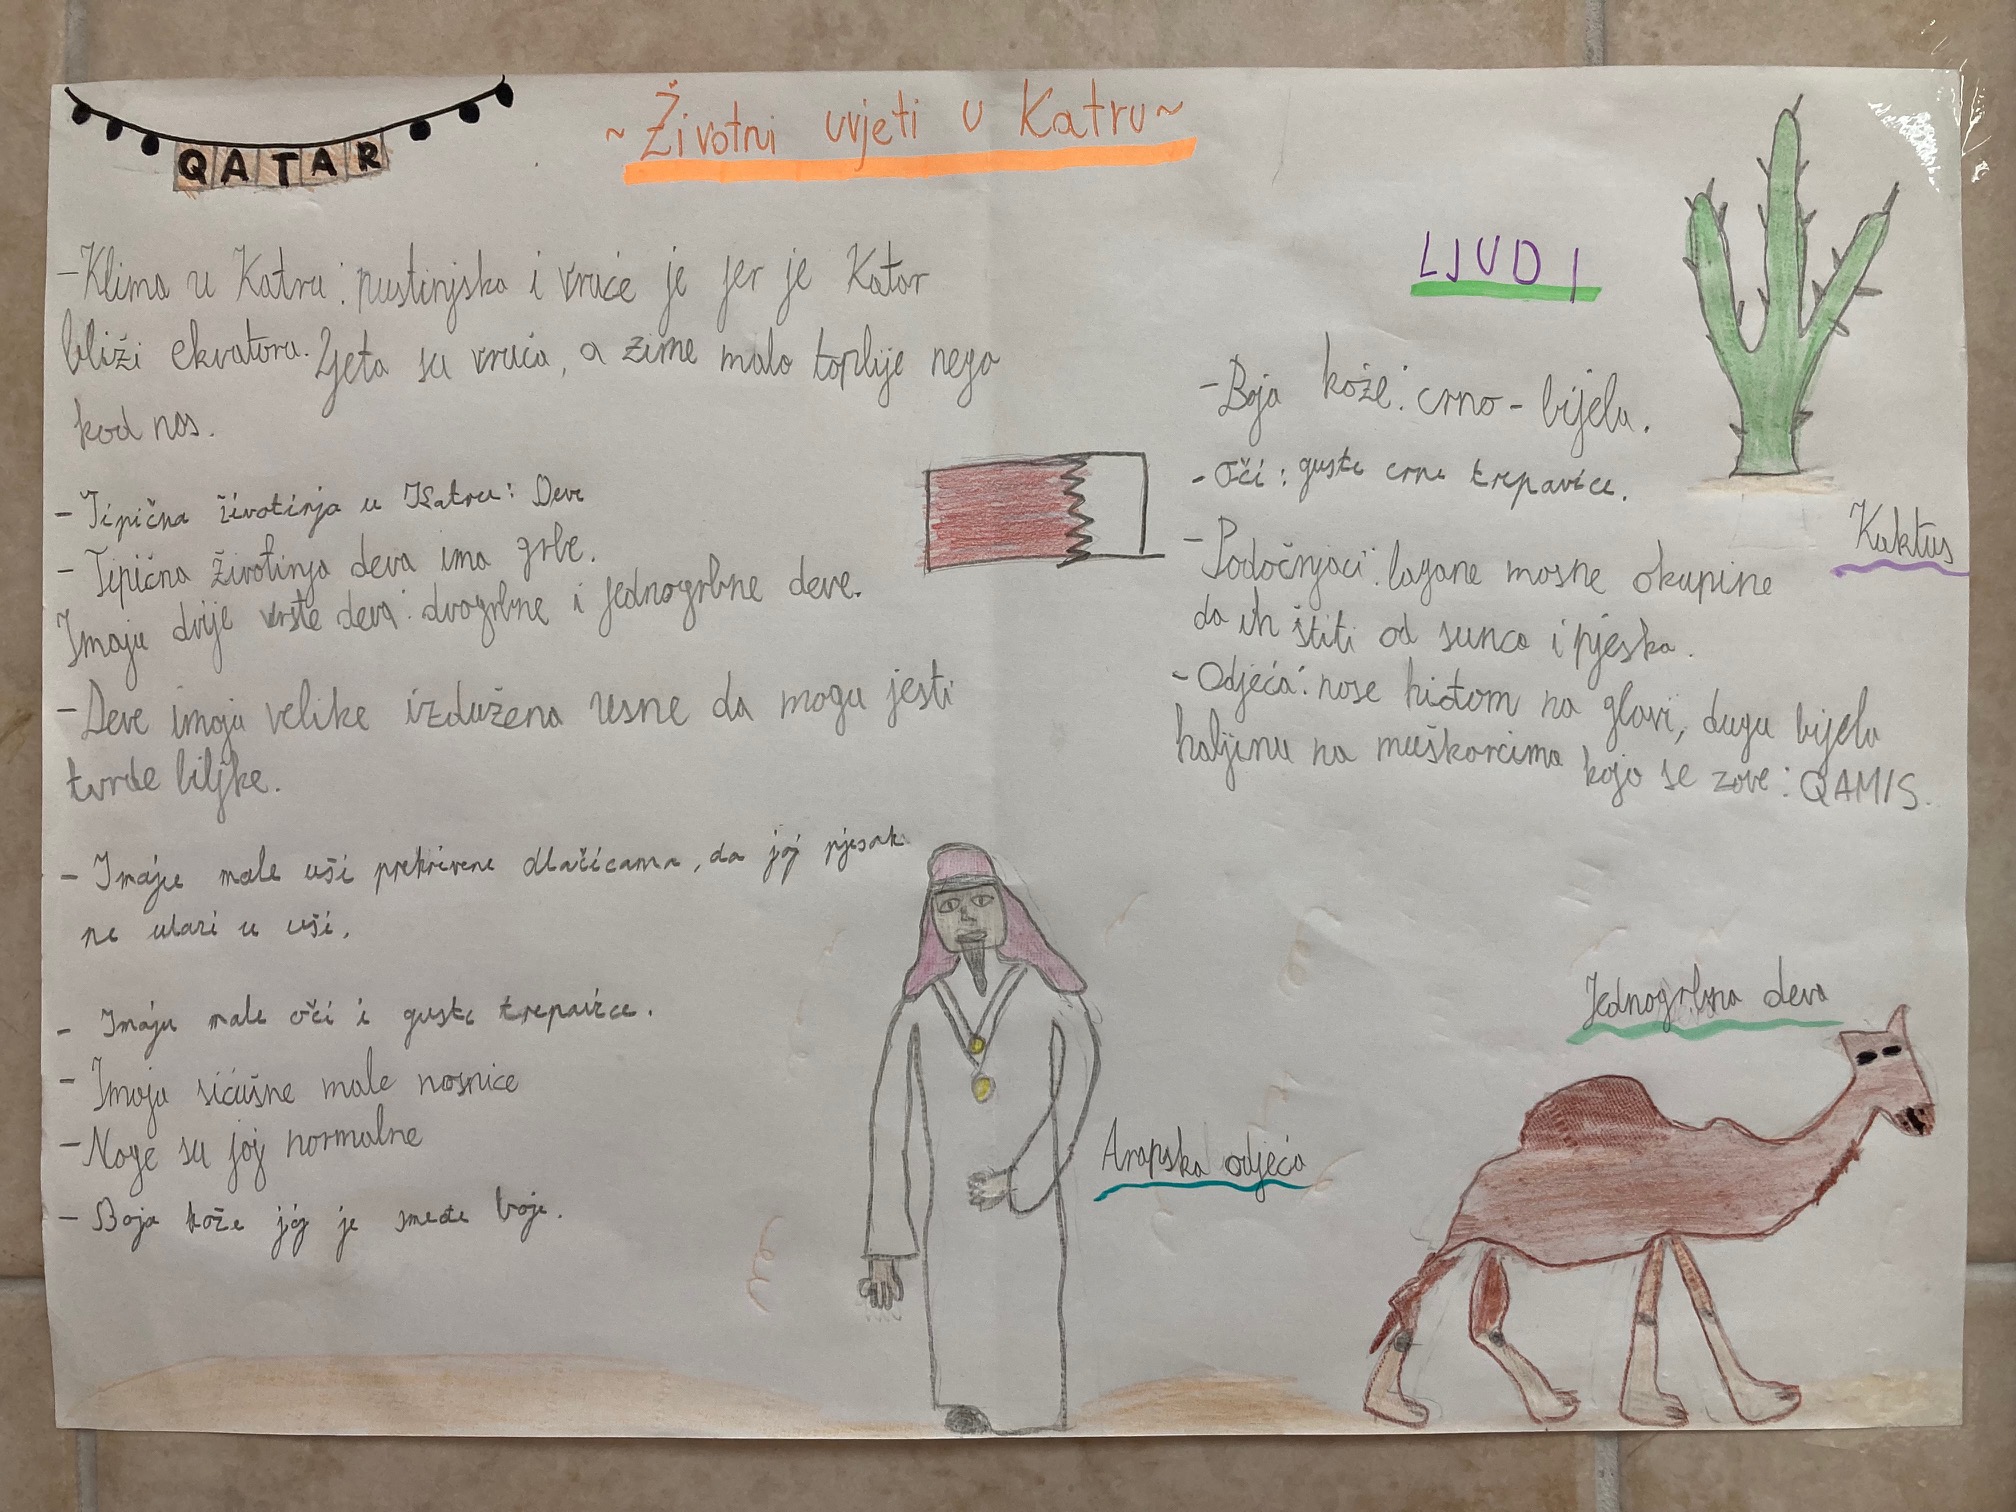 QATAR
~Životni uvjeti u Katru~
-Klima u Katru: pustinjska i vruće je jer je Katar
bliži ekvatoru. Ljeta su vruća, a zime malo toplije nego
kod nas.
- Tipična životinja u Katru: Deve
- Tipična životinja deva ima grbe.
Imaju dvije vrste deva: dvogrbne i jednogrbne deve.
-Deve imaju velike izdužena usne da mogu jesti
tvrde biljke.
- Imaju male uši prekrivene dlačicama, da joj pjesak
ne ulazi u uši.
- Imaju male oči i guste trepavice.
- Imaju sićušne male nosnice
- Noge su joj normalne
- Boja kože joj je smeđe boje.
LJUDI
-Boja kože: crno-bijela.
- Oči: guste crne trepavice.
-Podočnjaci: lagane masne okupine
da ih štiti od sunca i pjeska.
-Odjeća: nose hiđam na glavi, dugu bijelu
haljinu na muškarcima koja se zove: QAMIS.
Kaktus
Arapska odjeća
Jednogrbna deva